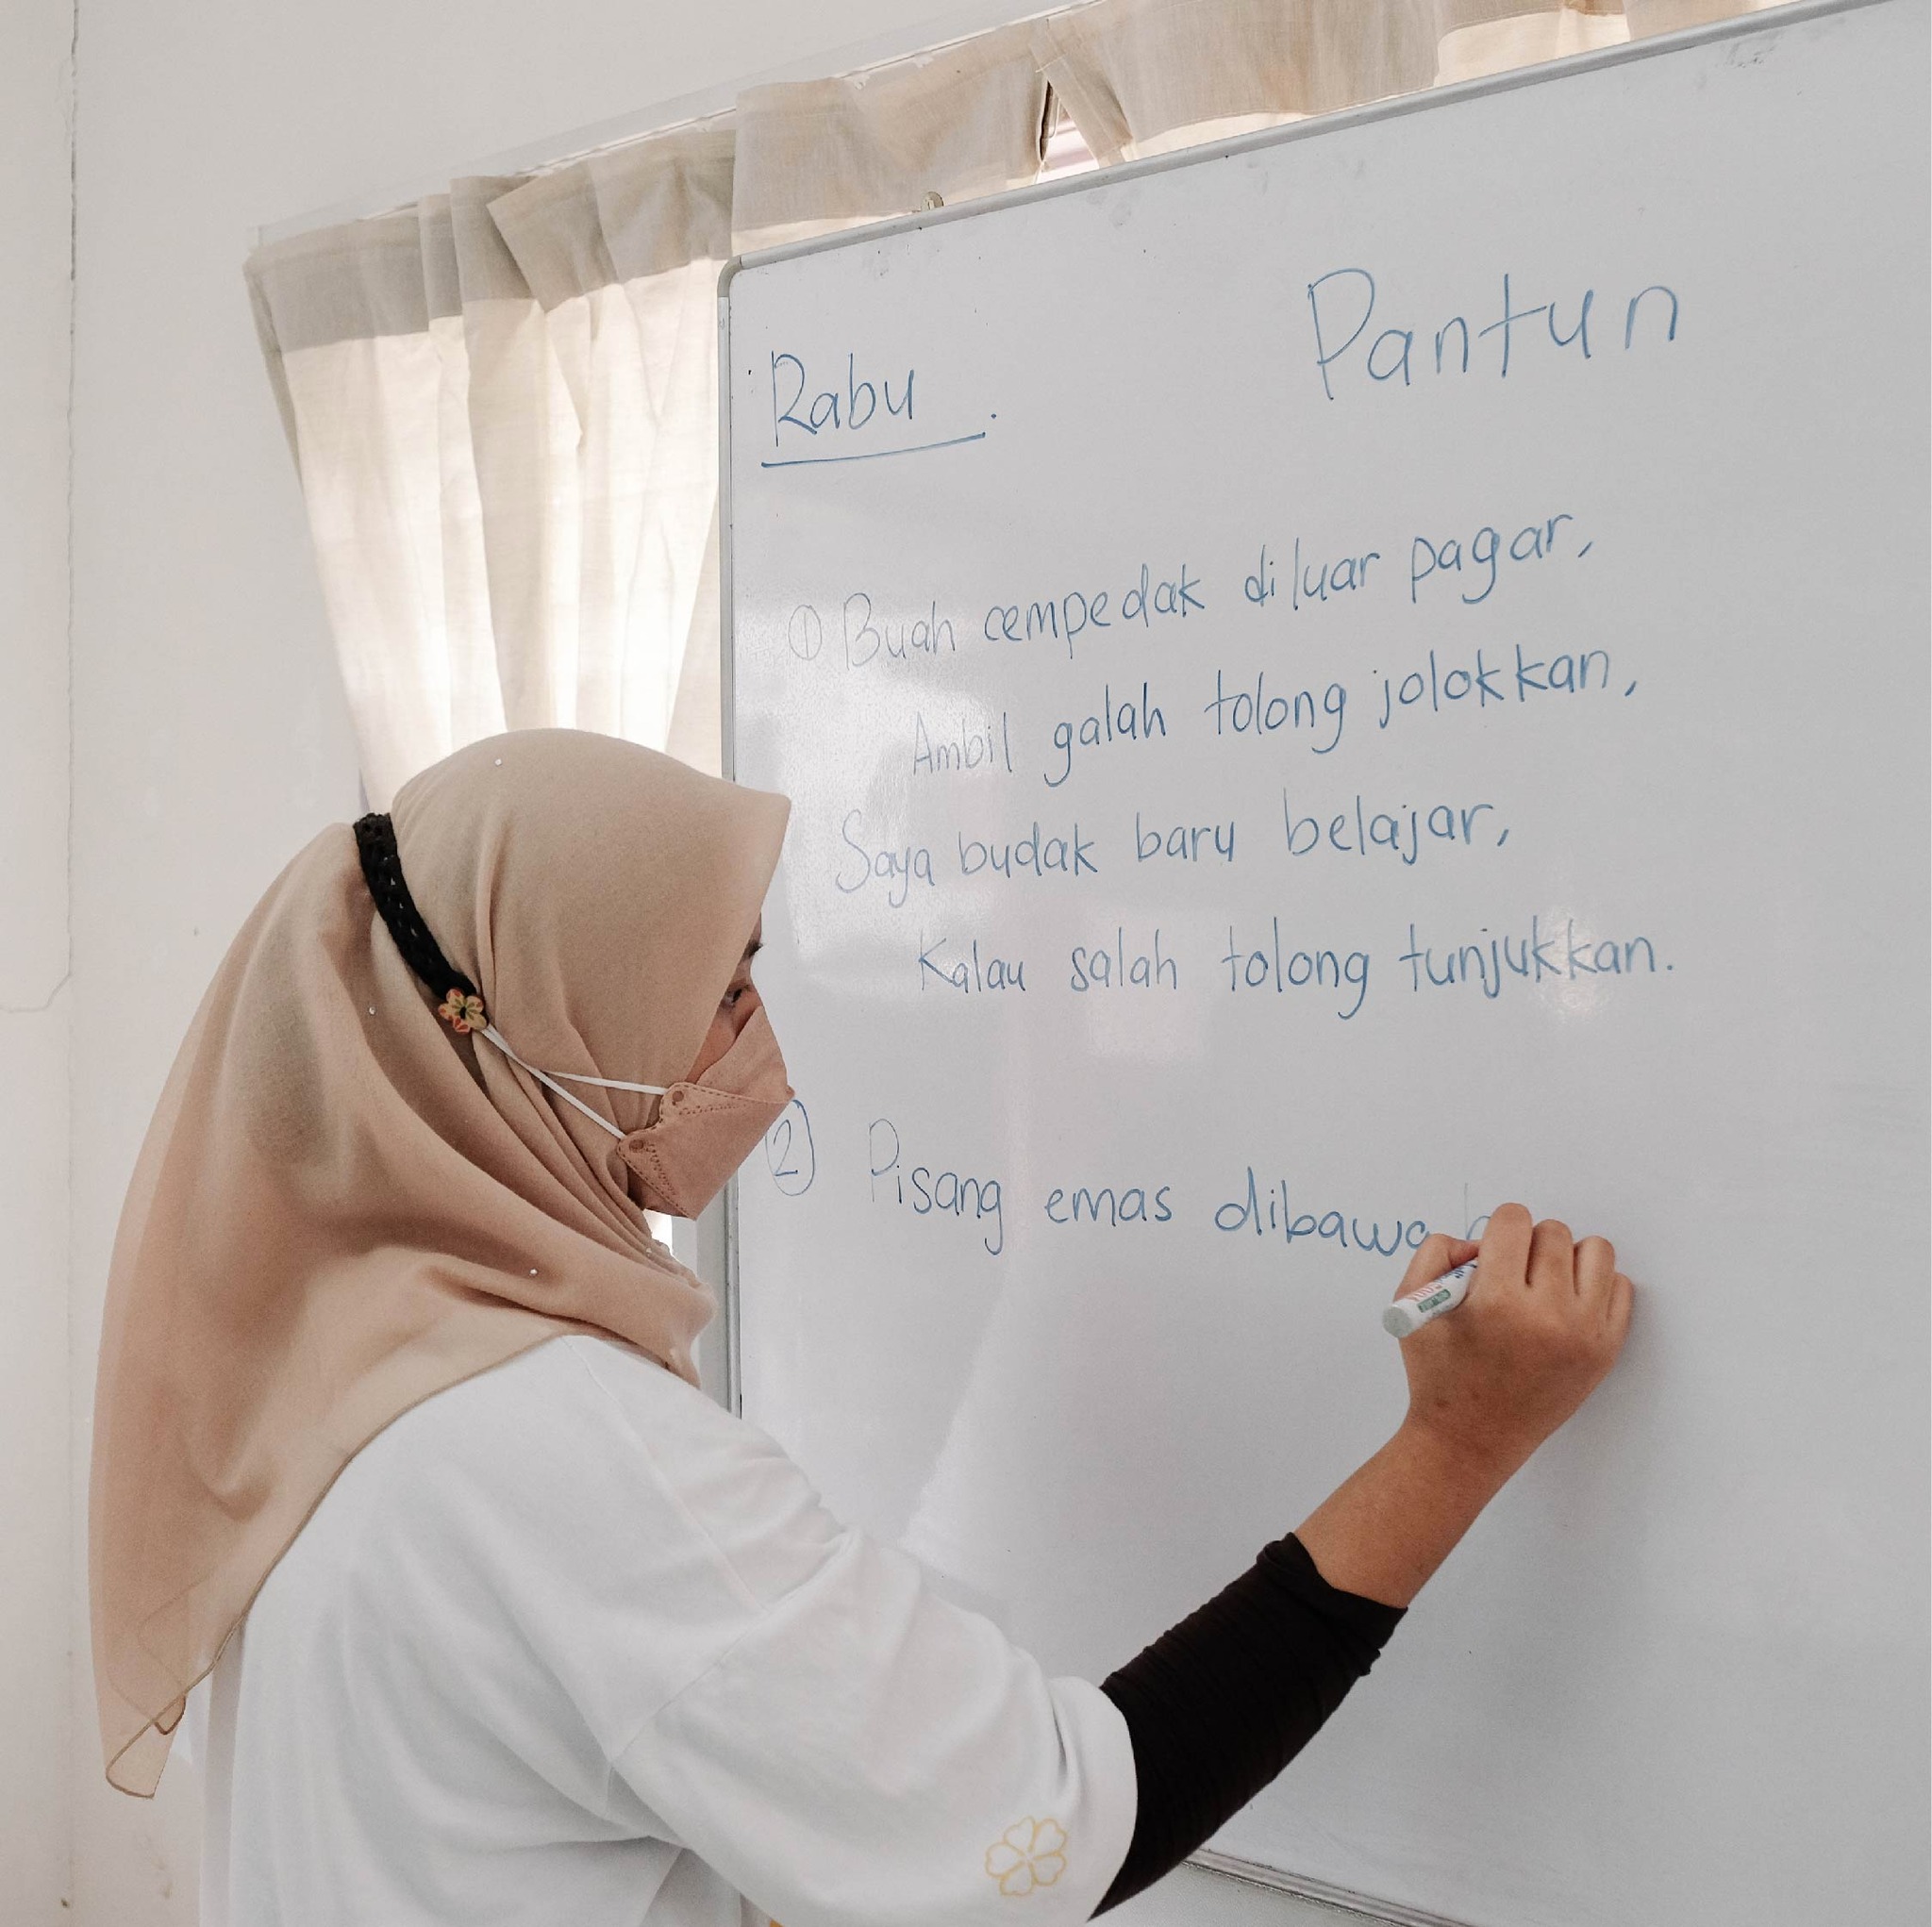 Pantun
Rabu.
① Buah cempedak diluar pagar,
Ambil galah tolong jolokkan,
Saya budak baru belajar,
Kalau salah tolong tunjukkan.
② Pisang emas dibawa